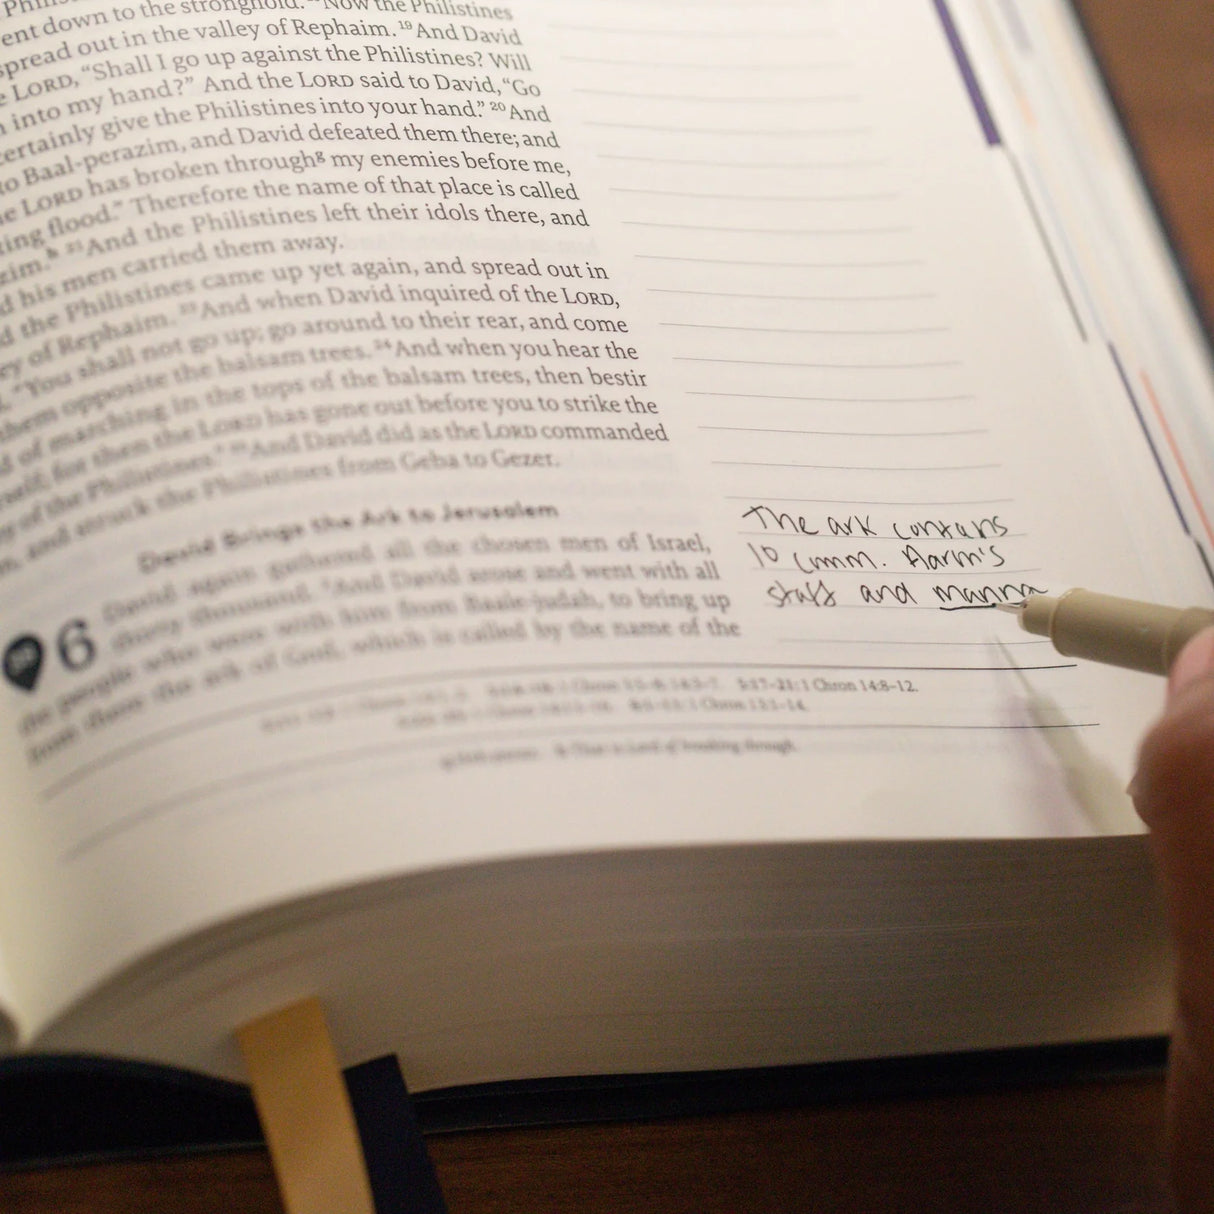 ent down to the stronghold. Now the Philistines
spread out in the valley of Rephaim. 19 And David
LORD, “Shall I go up against the Philistines? Will
into my hand?” And the LORD said to David, “Go
certainly give the Philistines into your hand.” 20 And
to Baal-perazim, and David defeated them there; and
LORD has broken through g my enemies before me,
flood.” Therefore the name of that place is called
h 21 And the Philistines left their idols there, and
his men carried them away.
the Philistines came up yet again, and spread out in
of Rephaim. 23 And when David inquired of the LORD,
“You shall not go up; go around to their rear, and come
them opposite the balsam trees. 24 And when you hear the
of marching in the tops of the balsam trees, then bestir
for them the LORD has gone out before you to strike the
of the Philistines.” 25 And David did as the LORD commanded
and struck the Philistines from Geba to Gezer.
David Brings the Ark to Jerusalem
6 David again gathered all the chosen men of Israel,
thirty thousand. 2 And David arose and went with all
the people who were with him from Baale-judah, to bring up
from there the ark of God, which is called by the name of the
The ark contains
10 comm. Aaron's
staff and manna
5:17–21:1 Chron 14:8–12.
That is Lord of breaking through.